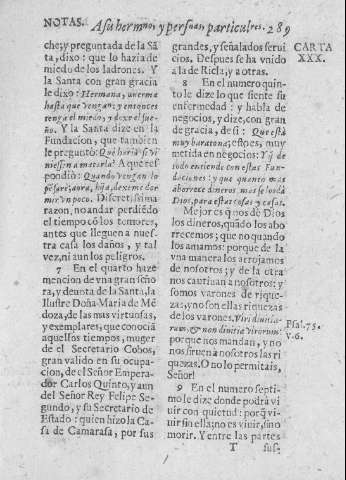 NOTAS. A su hermno, y personas particulres. 289
che; y preguntada de la Sã
ta, dixo: que lo hazia de
miedo de los ladrones. Y
la Santa con gran gracia
le dixo: Hermana, duerma
hasta que vengan; y entonces
tenga el miedo, y dexe el sue-
ño. Y la Santa dize en la
Fundacion, que tambien
le preguntò: Què haria si vi
niessen a matarla? A que res
pondiò: Quando vengan lo
pẽsarè; aora, hija, dexeme dor
mir vn poco. Discretissima
razon, no andar perdiẽdo
el tiempo cõ los temores,
antes que lleguen a nues-
tra casa los daños, y tal
vez, ni aun los peligros.
7 En el quarto haze
mencion de vna gran seño
ra, y deuota de la Santa, la
Ilustre Doña Maria de Mẽ
doza, de las mas virtuosas,
y exemplares, que conociã
aquellos tiempos, muger
de el Secretario Cobos,
gran valido en su ocupa-
cion, de el Señor Empera-
dor Carlos Quinto, y aun
del Señor Rey Felipe Se-
gundo, y su Secretario de
Estado: quien hizo la Ca-
sa de Camarasa, por sus
grandes, y señalados serui
cios. Despues se ha vnido
a la de Ricla, y a otras.
8 En el numero quin-
to le dize lo que siente su
enfermedad: y habla de
negocios, y dize, con gran
de gracia, de sì: Que està
muy baratona; esto es, muy
metida en negocios: Y q̃ de
todo entiende con estas Fun-
daciones: y que quanto mas
aborrece dineros, mas se los dà
Dios, para estas cosas y casas.
Mejor es q̃ nos dè Dios
los dineros, quãdo los abo
rrecemos; que no quando
los amamos: porque de la
vna manera los arrojamos
de nosotros; y de la otra
nos cautiuan a nosotros: y
somos varones de rique-
zas, y no son ellas riquezas
de los varones. Viri divitia-
rum, & non divitiæ virorum:
porque nos mandan, y no
nos siruen a nosotros las ri
quezas. O no lo permitais,
Señor!
9 En el numero septi-
mo le dize donde podrà vi
uir con quietud: porq̃ vi-
uir sin ella; no es viuir, sino
morir. Y entre las partes
T sus-
CARTA
XXX.
Psal. 75.
v. 6.